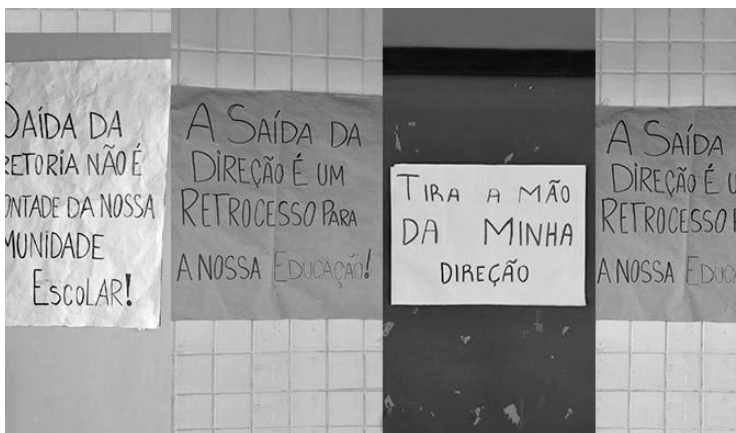 SAÍDA DA
RETORIA NÃO É
ONTADE DA NOSSA
MUNIDADE
ESCOLAR!
A SAÍDA DA
DIREÇÃO É UM
RETROCESSO PARA
A NOSSA EDUCAÇÃO!
TIRA A MÃO
DA MINHA
DIREÇÃO
A SAÍDA
DIREÇÃO É U
RETROCESSO P
A NOSSA EDUCA